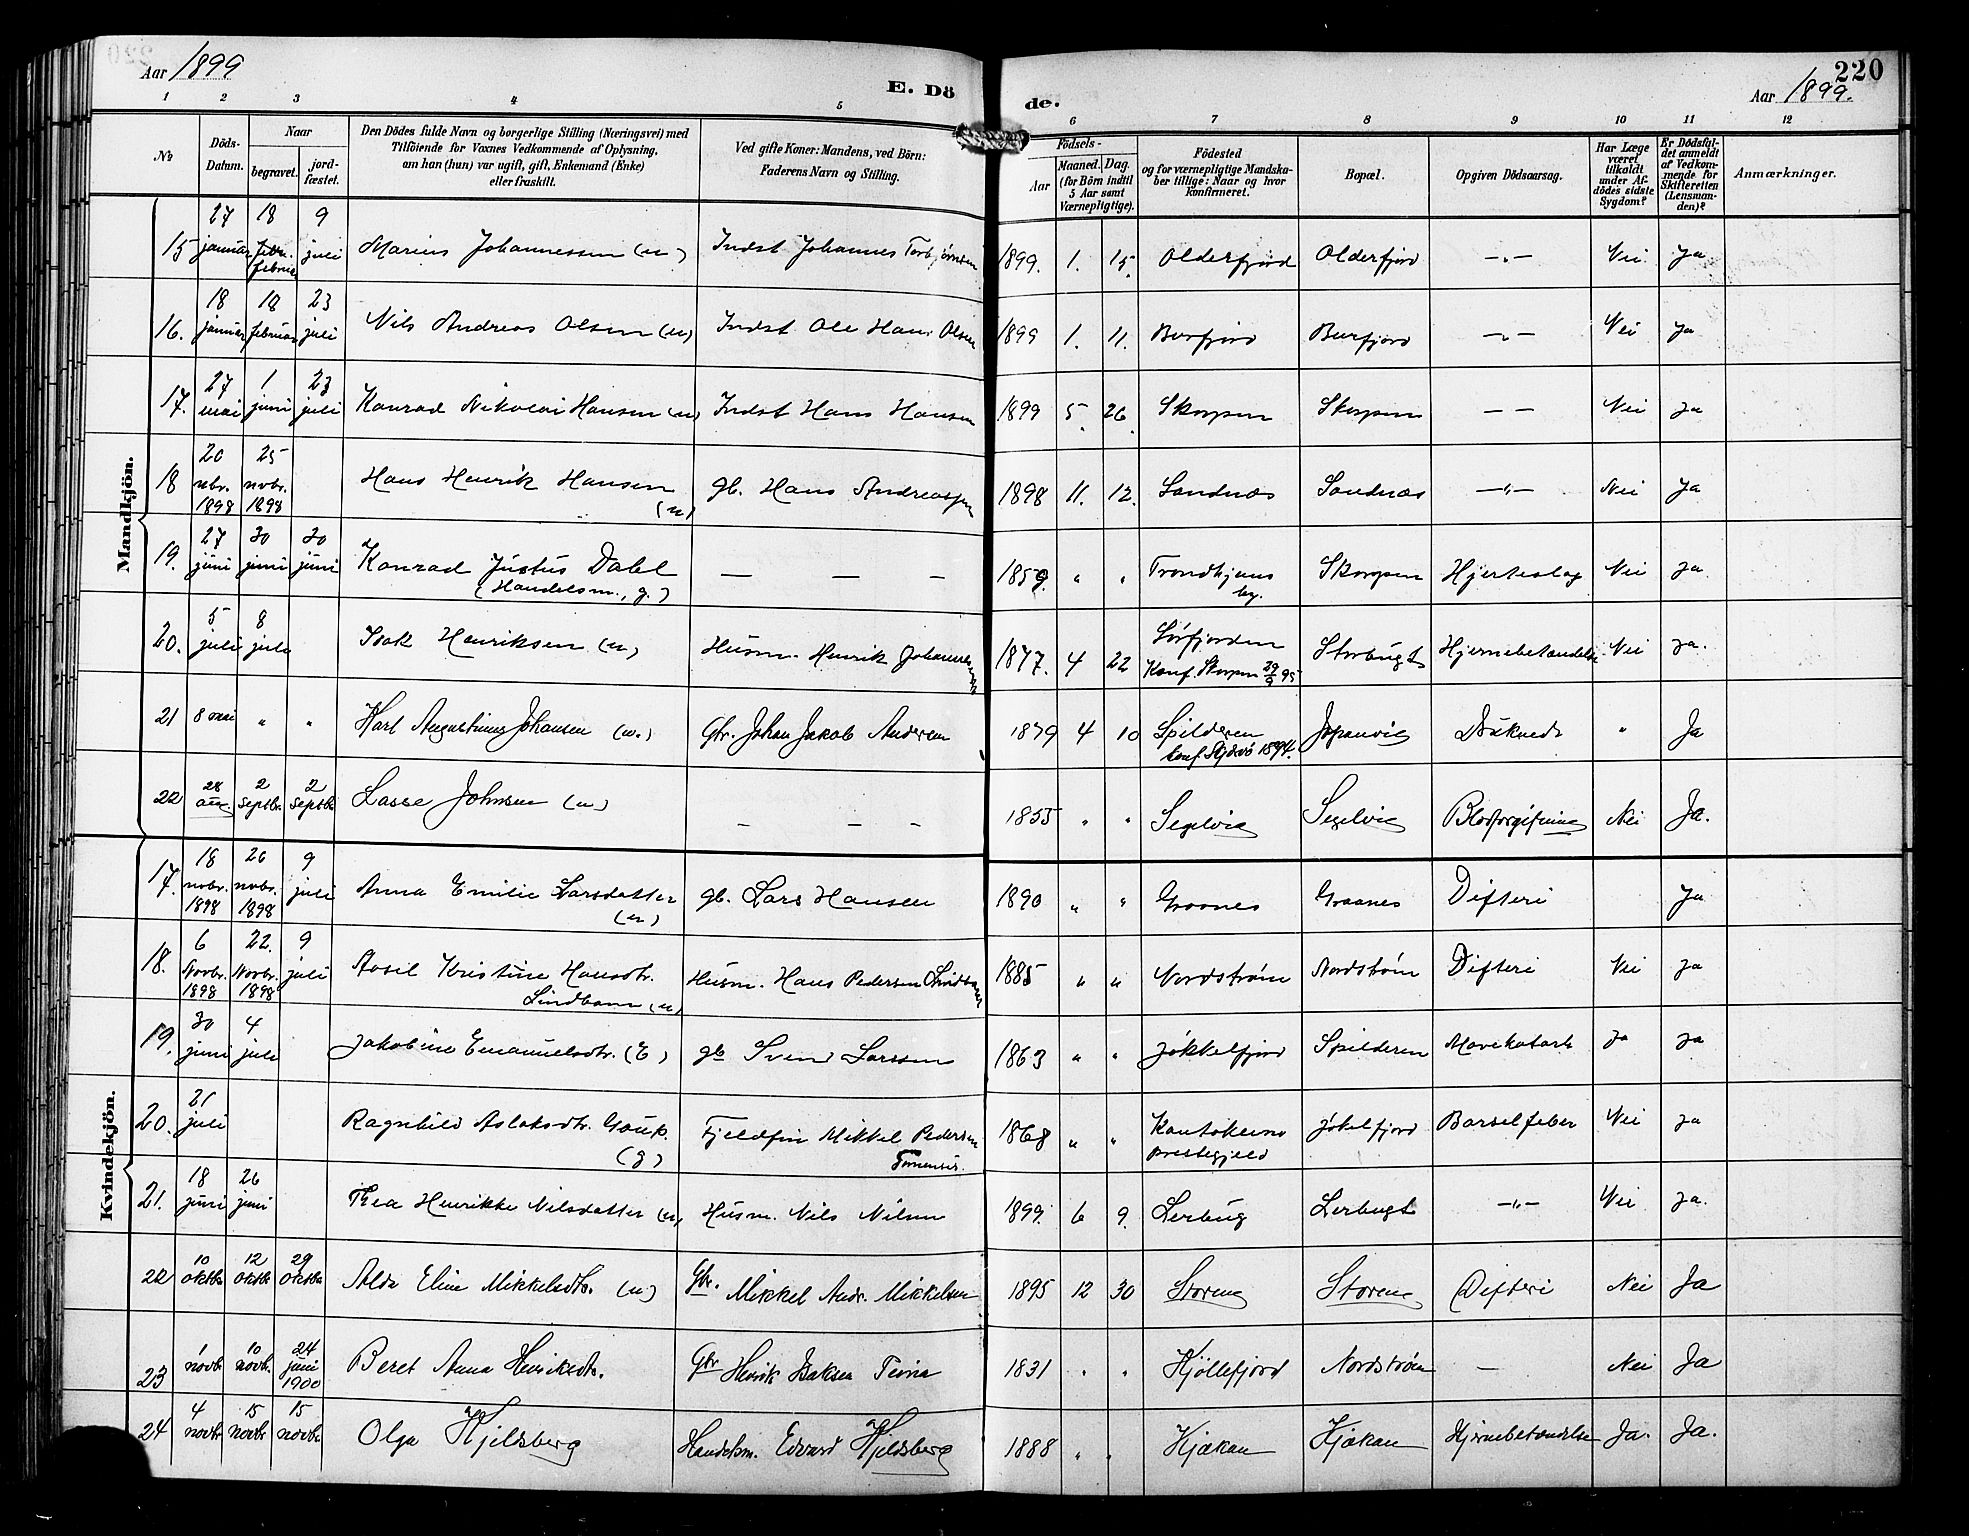 Aar 1899
E. Dö
de.
220
Aar 1899.
1 2 3 4 5 6 7 8 9 10 11 12
No
Döds-Datum.
Naar
begravet.
jord-fæstet.
Den Dödes fulde Navn og borgerlige Stilling (Næringsvei) med
Tilföiende for Voxnes Vedkommende af Oplysning,
om han (hun) var ugift, gift, Enkemand (Enke)
eller fraskilt.
Ved gifte Koner: Mandens, ved Börn:
Faderens Navn og Stilling.
Födsels-
Aar
Maaned. Dag.
(for Börn indtil
5 Aar samt
Værnepligtige).
Födested
og for værnepligtige Mandska-
ber tillige: Naar og hvor
konfirmeret.
Bopæl.
Opgiven Dödsaarsag.
Har Læge
været
tilkaldt
under Af-
dödes sidste
Sygdom?
Er Dödsfal-
det anmeldt
af Vedkom-
mende for
Skifteretten
(Lensman-
den)?
Anmærkninger.
Mandkjön.
15 27 januar 18 febr. februar 9 juli Marius Johannessen (u) Indst Johannes Torbjørnsen 1899. 1. 15. Olderfjord Olderfjord —"— Nei Ja
16. 18 januar 10 februar 23 juli Nils Andreas Olsen (u) Indst Ole Hans Olsen 1899 1. 11. Burfjord Burfjord —"— Nei Ja
17. 27 mai 1 juni 23 juli Konrad Nikolai Hansen (u) Indst Hans Hansen 1899 5. 26. Skorpen Skorpen — — Nei Ja
18 20 nbr. 1898 25 novbr. 1898 Hans Henrik Hansen (u) gb. Hans Andreassen 1898 11. 12. Sandnæs Sandnæs —"— Nei Ja
19. 27 juni 30 juni 30 juni Konrad Justus Dahl (Handelsm., g.) — — — 1859. " " Trondhjems by. Skorpen Hjerteslag Nei Ja
20. 5 juli 8 juli Isak Henriksen (u) Husm. Henrik Johannessen 1877. 4 22 Sørfjorden Konf. Skorpen 29/9 95 Storbugt Hjernebetændelse Nei Ja.
21 8 mai " " Karl Augustinus Johansen (u.) Gbr. Johan Jakob Andersen 1879 4 10 Spilderen konf. Skjærvø 1894. Druknede " Ja
22 28 aug. 2 septbr. 2 septbr Lasse Johnsen (u) — — — 1855 " " Segelvig Segelvig Blodforgiftning Nei Ja.
Kvindekjön.
17. 18 novbr. 1898 26 novbr. 1898 9 juli Anna Emilie Larsdatter (u) gb. Lars Hansen 1890 " " Graanes Graanes Difteri Ja
18. 6 Novbr. 1898 22. Novbr. 1898 9 juli Aasil Kristine Hansdtr. (u) Husm. Hans Pedersen 1885 " " Nordstrøm Nordstrøm Difteri Nei Ja
19. 30 juni 4 juli Jakobine Emanuelsdtr. (E) gb Svend Larssen 1863 " " Jøkkelfjord Spilderen Mavekatarh Ja Ja
20. 21 juli Ragnhild Aslaksdtr. Gaup. (g) Fjeldfin Mikkel Pedersen 1868 " " Kautokeino prestegjeld Jøkelfjord Barselfeber Nei Ja
21. 18 juni 26 juni Thea Henrikke Nilsdatter (u) Husm. Nils Nilsen 1899. 6 9. Lerbug Lerbugt —"— Nei Ja.
22 10 oktbr 12 oktbr 29 oktbr Alda Eline Mikkelsdtr. (u) Gbr. Mikkel Andr. Mikkelsen 1895 12 30 Storeng Storeng Difteri Nei Ja
23 1 novbr 10 novbr. 24 juni 1900 Beret Anna Henriksdtr. Gbr Henrik Isaksen 1831 " " Kjøllefjord Nordstrøm — Nei Ja
24 4 novbr 15 novbr 15 novbr. Olga Kjeldsberg Handelsm. Edvard Kjeldsberg 1888 " " Kjækan Kjækan Hjernebetændelse Ja. Ja.